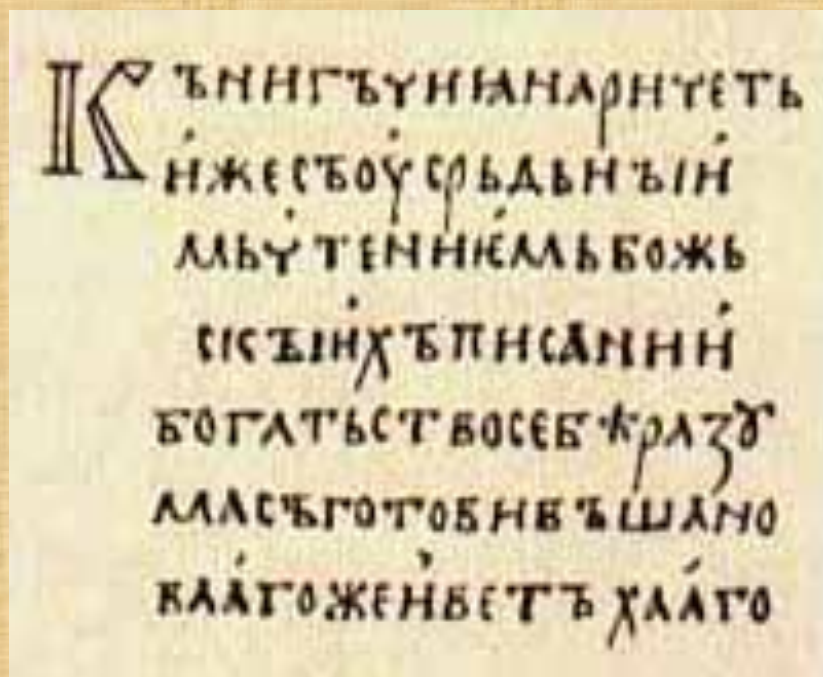 КЪНИГЪЧИꙖНАРИЧЕТЬ
И҆ЖЕСЪОУ҆СРЬДЬНЪІИ҆
МЬЧТЕНИѤМЬБОЖЬ
СКЪІИХЪПИСАНИИ҆
БОГАТЬСТВОСЕБѢРАЗꙊ
МАСЪГОТОВИВЪШАНО
ВАА҆ГОЖЕИ҆ВЕТЪХАА҆ГО